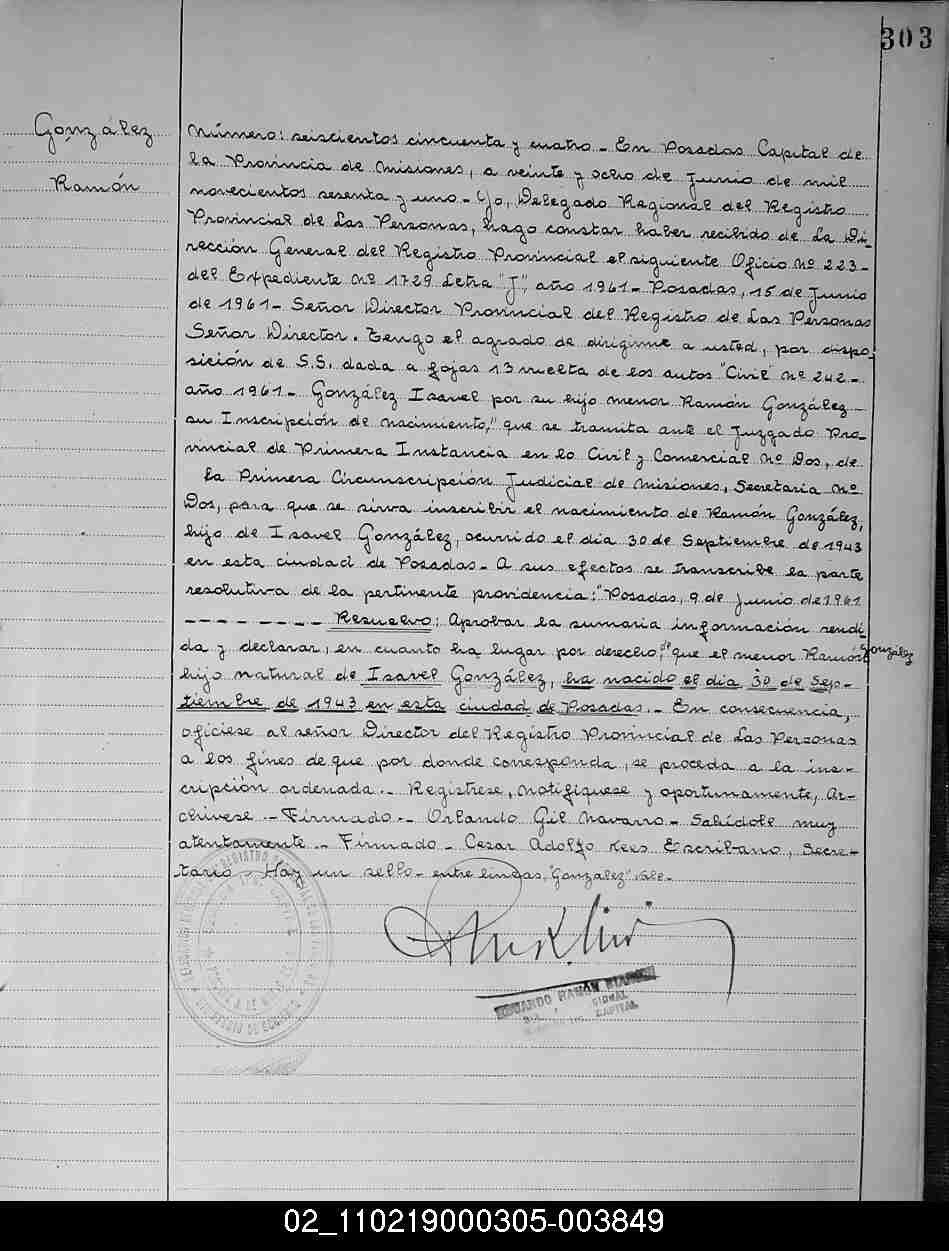 303
González
Ramón
Número: seiscientos cincuenta y cuatro - En Posadas Capital de
la Provincia de Misiones, a veinte y ocho de Junio de mil
novecientos sesenta y uno - Yo, Delegado Regional del Registro
Provincial de Las Personas, hago constar haber recibido de La Di-
rección General del Registro Provincial el siguiente Oficio Nº 223-
del Expediente Nº 1729 Letra "J", año 1961 - Posadas, 15 de Junio
de 1961 - Señor Director Provincial del Registro de Las Personas
Señor Director. Tengo el agrado de dirigirme a usted, por dispo-
sición de S.S. dada a fojas 13 vuelta de los autos "Civil" Nº 242 -
año 1961 - González Isavel por su hijo menor Ramón González
su Inscripción de nacimiento," que se tramita ante el Juzgado Pro-
vincial de Primera Instancia en lo Civil y Comercial Nº Dos, de
la Primera Circunscripción Judicial de Misiones, Secretaria Nº
Dos, para que se sirva inscribir el nacimiento de Ramón González,
hijo de Isavel González, ocurrido el día 30 de Septiembre de 1943
en esta ciudad de Posadas - A sus efectos se transcribe la parte
resolutiva de la pertinente providencia: "Posadas, 9 de Junio de 1961
- - - - - - - - Resuelvo: Aprobar la sumaria información rendi-
da y declarar, en cuanto ha lugar por derecho, que el menor Ramón González
hijo natural de Isavel González, ha nacido el día 30 de Sep-
tiembre de 1943 en esta ciudad de Posadas. - En consecuencia,
ofíciese al señor Director del Registro Provincial de Las Personas
a los fines de que por donde corresponda, se proceda a la ins-
cripción ordenada. - Registrese, notifíquese y oportunamente, Ar-
chivese. - Firmado. - Orlando Gil Navarro - Salúdole muy
atentamente. - Firmado - Cesar Adolfo Kees Escribano, Secre-
tario - Hay un sello - entre lineas, "Gonzalez" Vale.
EDUARDO RAMÓN
CAPITAL
02_110219000305-003849